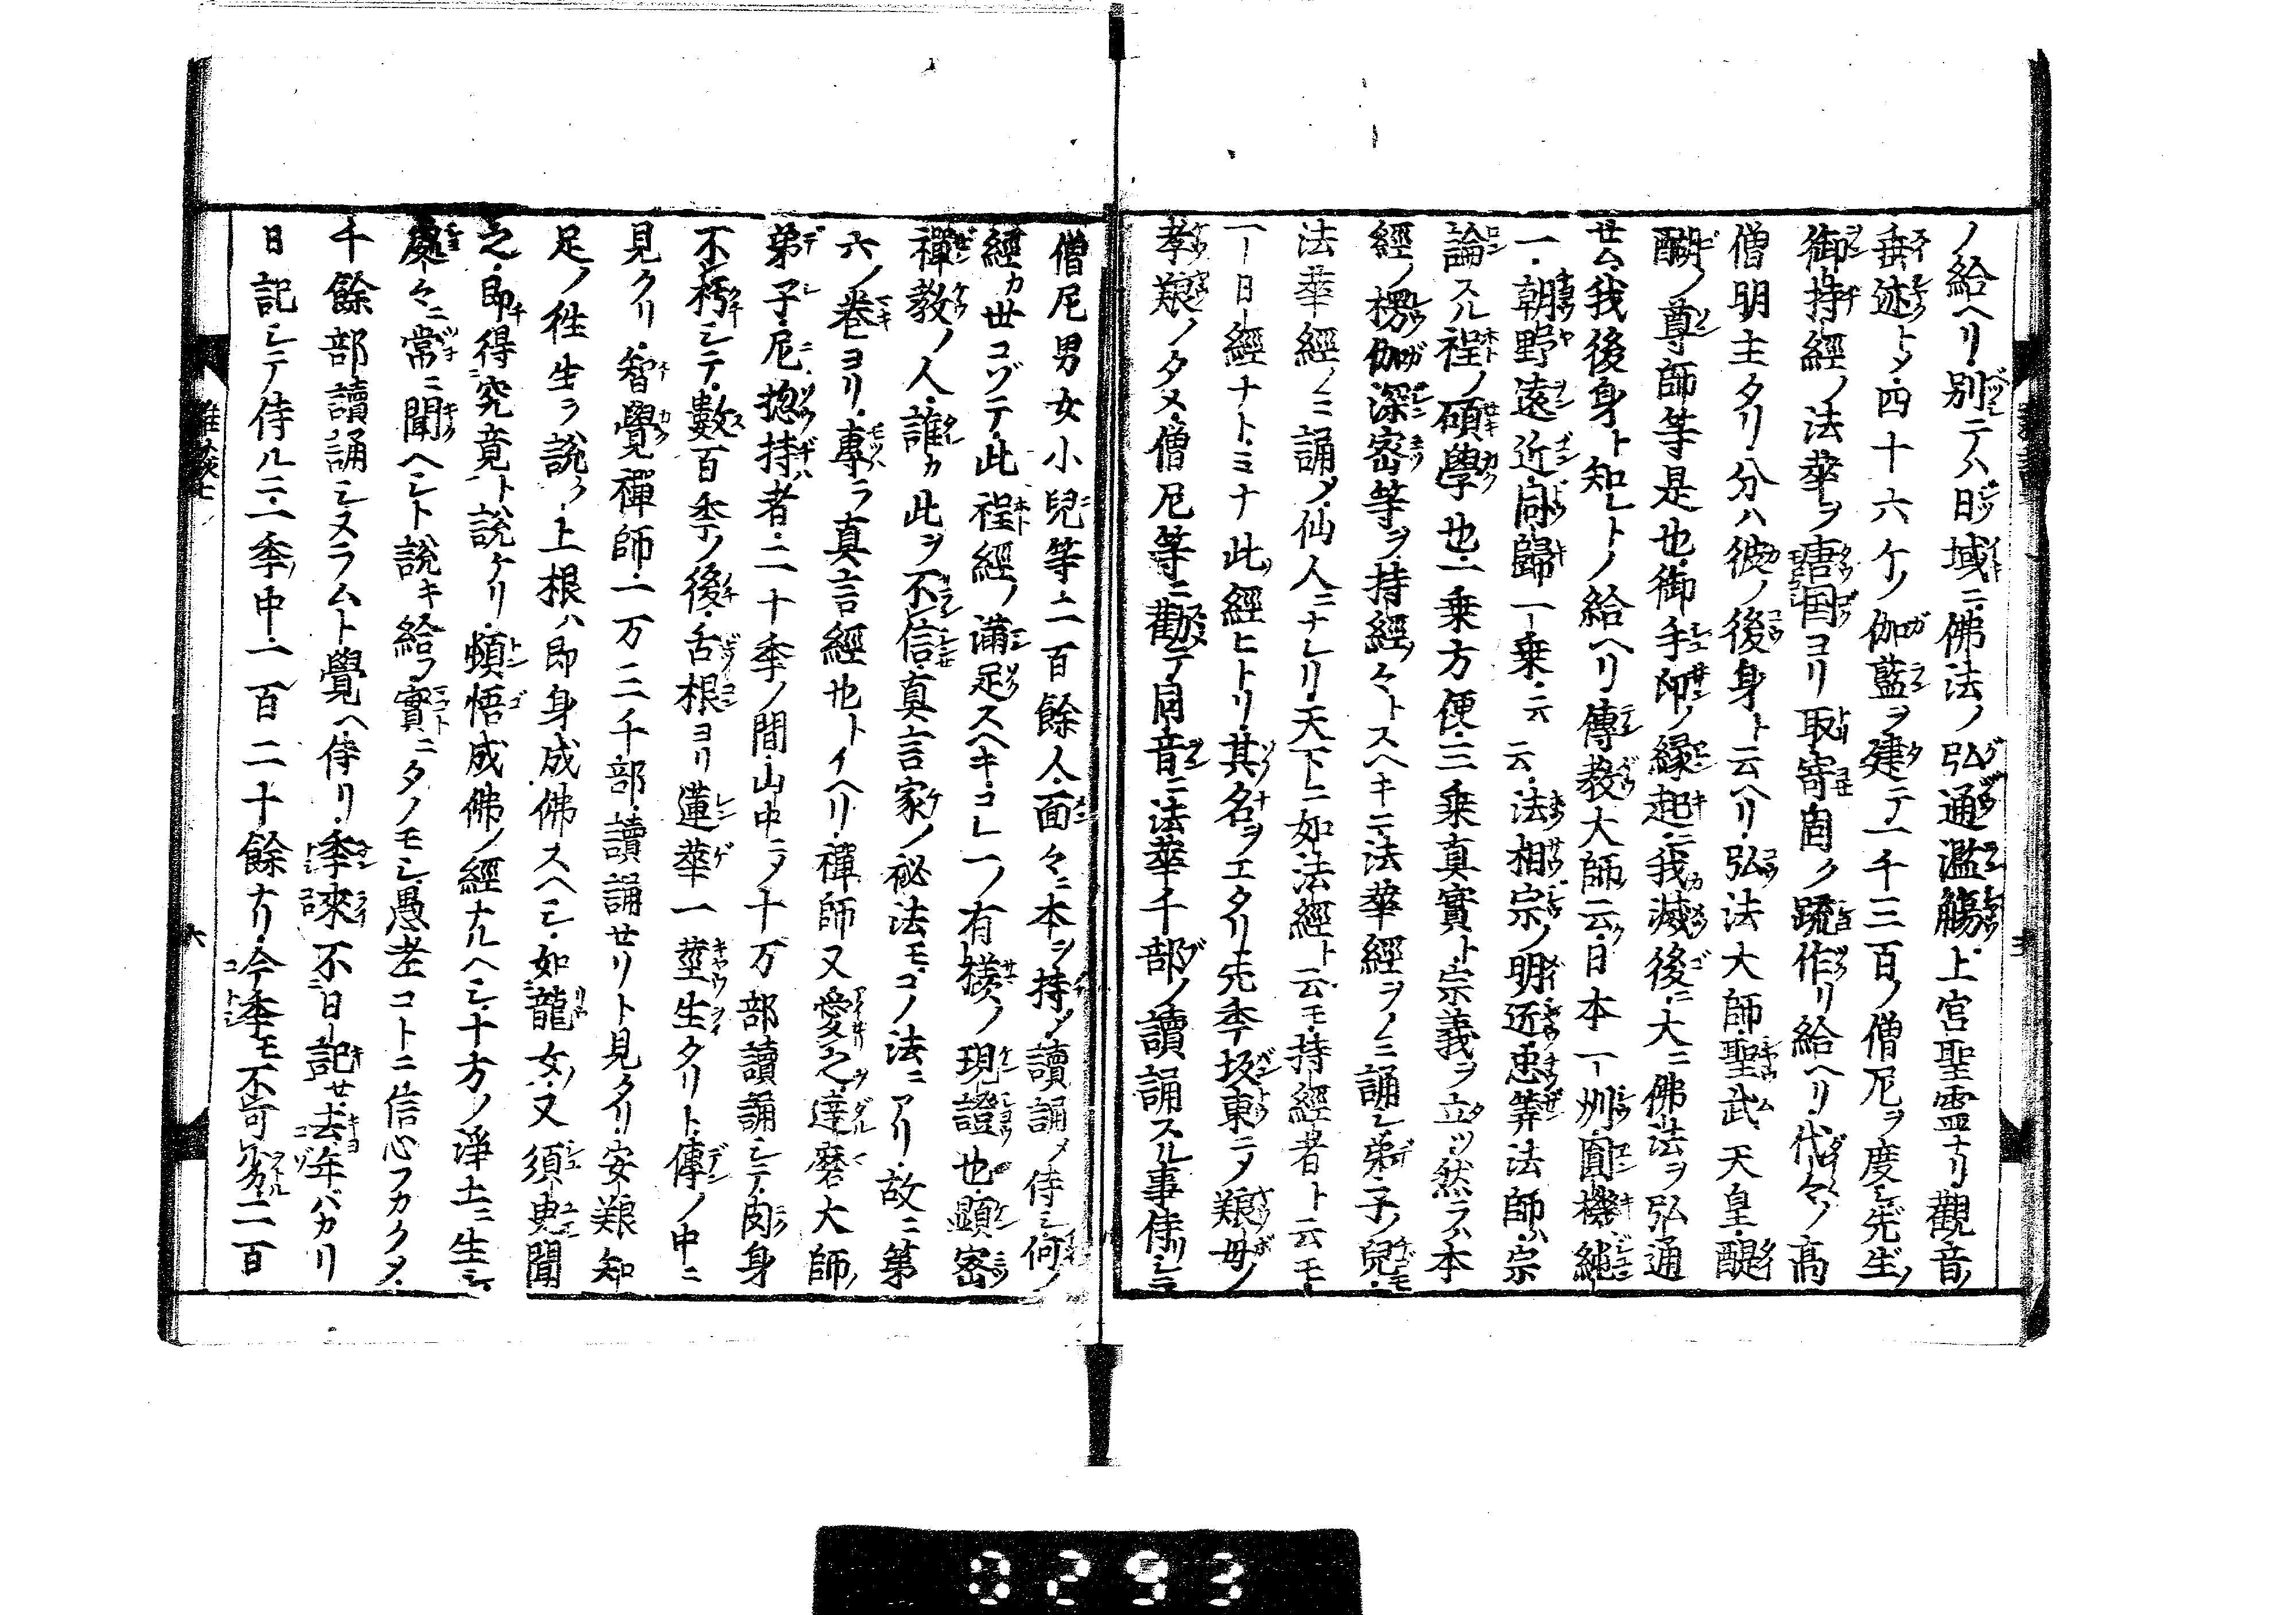 ノ給ヘリ別シテハ日域ニ佛法ノ弘通濫觴上宮聖霊ナリ觀音ノ
垂迹トメ四十六ケノ伽藍ヲ建テ一千三百ノ僧尼ヲ度シ先生ノ
御持經ノ法華ヲ唐国ヨリ取寄自ク䟽作リ給ヘリ代々ノ高
僧明主タリ分ハ彼ノ後身ト云ヘリ弘法大師聖武天皇醍
醐ノ尊師等是也御手印ノ縁起ニ我滅後ニ大ニ佛法ヲ弘通
せム我後身ト知レトノ給ヘリ傳教大師云日本一州圓機純
一朝野遠近同歸一乗云云法相宗ノ明近忠筭法師ハ宗
論スル程ノ碩學也一乗方便三乗真實ト宗義ヲ立ツ然ラハ本
經ノ楞伽深密等ヲ持經々トスヘキニ法華經ヲノミ誦シ弟子ノ兒
法華經ノミ誦メ仙人ニナレリ天下ニ如法經ト云モ持經者ト云モ
一日經ナトミナ此經ヒトリ其名ヲエタリ先季坂東ニメ艱母ノ
孝艱ノタメ僧尼等ニ勸テ同音ニ法華千部ノ讀誦スル事侍リシニ
僧尼男女小兒等二百餘人面々ニ本ヲ持メ讀誦メ侍シ何ノ
經カ世コゾテ此程經ノ滿足スヘキコレ一ノ有様ノ現證也顯密
禪教ノ人誰カ此ヲ不信真言家ノ祕法モコノ法ニアリ故ニ第
六ノ巻ヨリ專ラ真言經也トイヘリ禪師又愛之達磨大師ノ
弟子尼惣持者二十季ノ間山中ニメ十万部讀誦シテ肉身
不朽シテ數百季ノ後舌根ヨリ蓮華一莖生タリト傳ノ中ニ
見クリ智覺禪師一万三千部讀誦せリト見タリ安艱知
足ノ徃生ヲ説ク上根ハ即身成佛スヘシ如龍女又須臾聞
之即得究竟ト説ケリ頓悟成佛ノ經ナルヘシ十方ノ淨土ニ生シ
處々ニ常ニ聞ヘシト説キ給フ實ニタノモシ愚老コトニ信心フカクメ
千餘部讀誦シヌラムト覺ヘ侍リ季來不日記せ去年バカリ
日記シテ侍ル三一季中一百二十餘ナリ今季モ不可劣二百
雜談七
六
0293